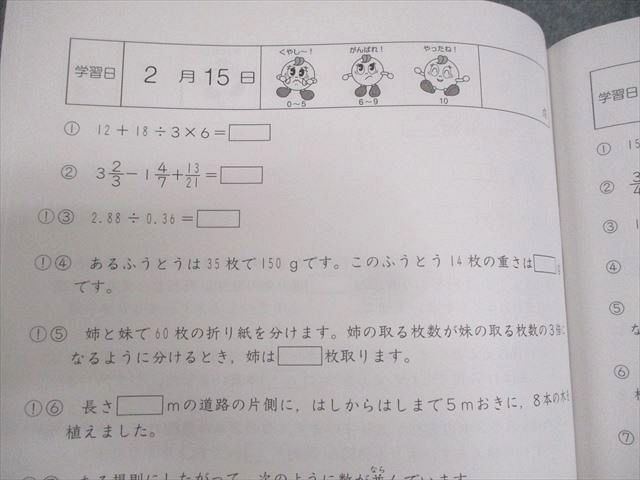 学習日 2月15日 くやし〜! がんばれ! やったね!
0〜5 6〜9 10
① 12+18÷3×6=
② 3 2/3-1 4/7+13/21=
①③ 2.88÷0.36=
①④ あるふうとうは35枚で150gです。このふうとう14枚の重さは g
です。
①⑤ 姉と妹で60枚の折り紙を分けます。姉の取る枚数が妹の取る枚数の3倍に
なるように分けるとき,姉は 枚取ります。
①⑥ 長さ mの道路の片側に,はしからはしまで5mおきに,8本の木を
植えました。
ある規則にしたがって,次のように数が並んでいます。
なら
学習日
① 15
② 3/4
③ 1
④
⑤
な
⑥
⑦